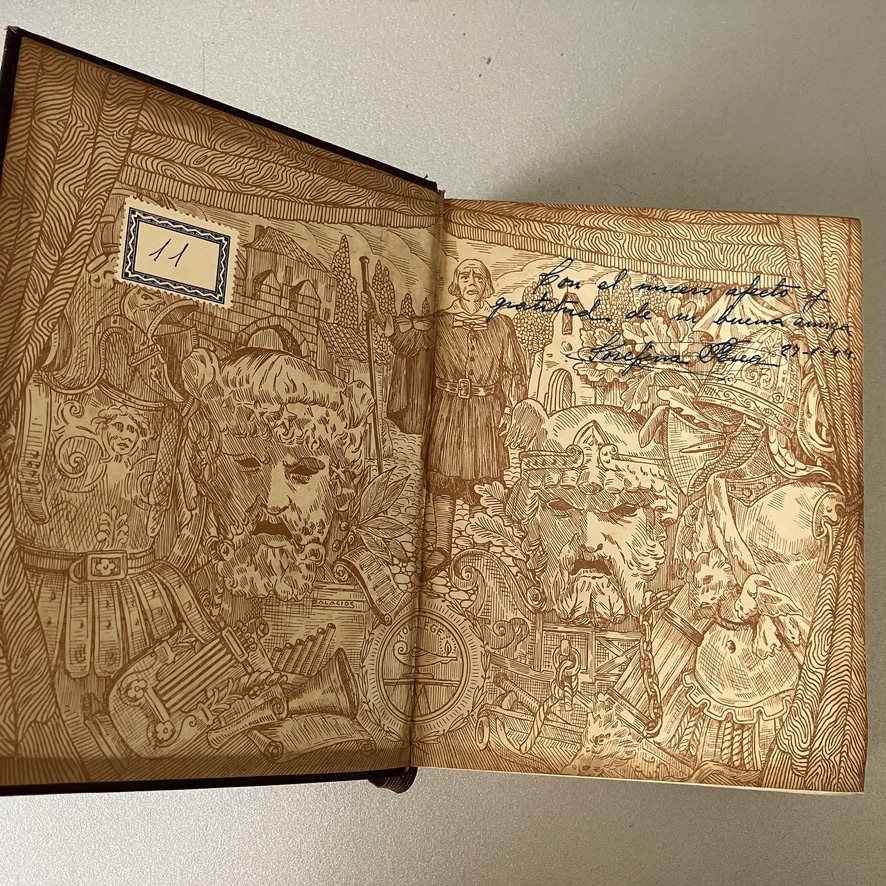 11
Con el sincero afecto y
gratitud de su buena amiga
Josefina
PALACIOS